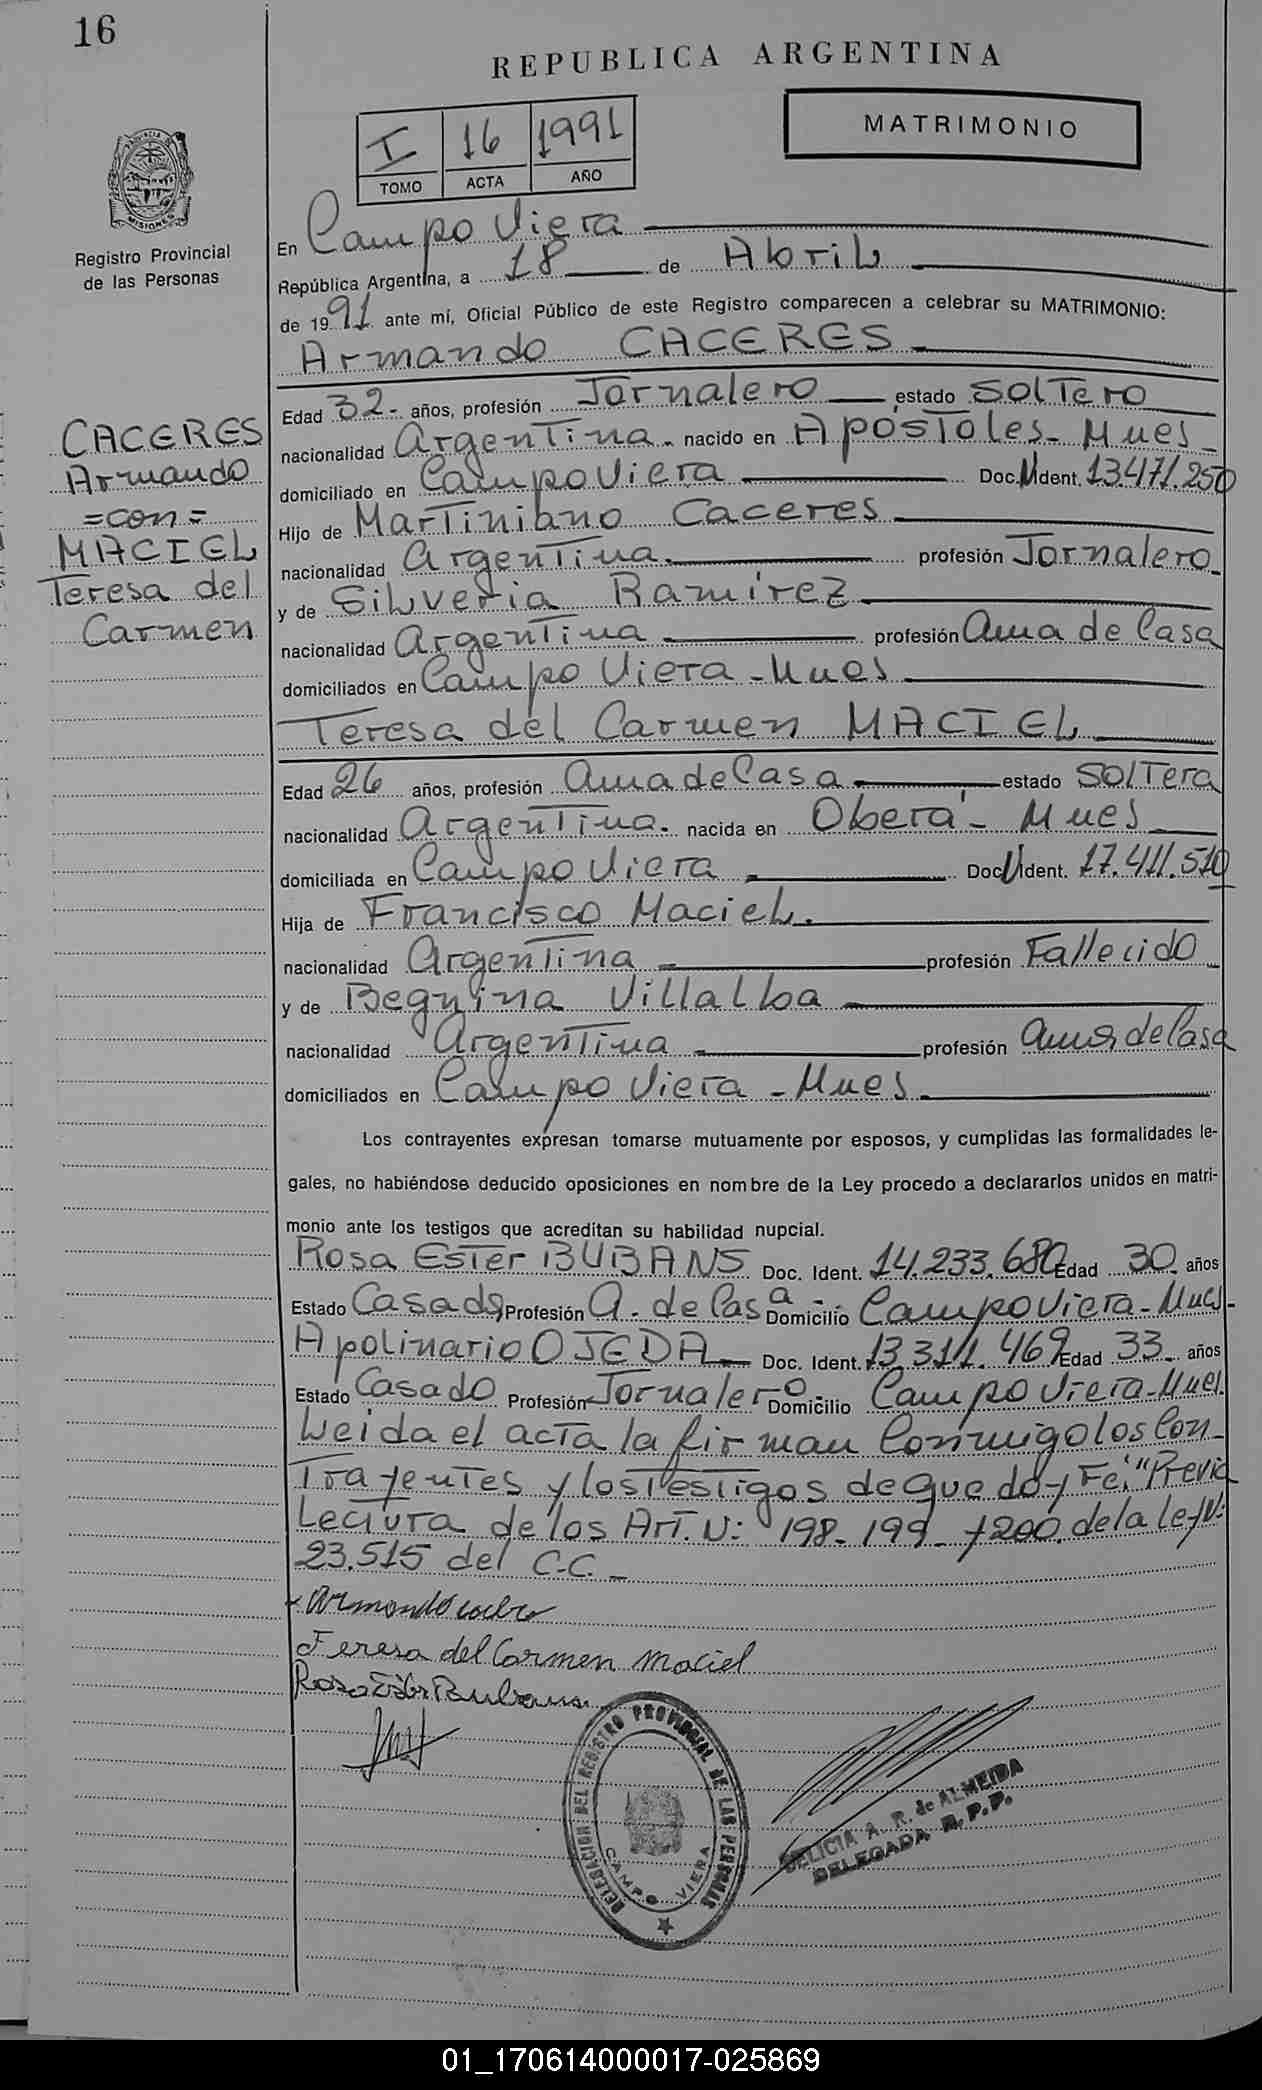 16
REPUBLICA ARGENTINA
I 16 1991
TOMO ACTA AÑO
MATRIMONIO
PROVINCIA DE
MISIONES
Registro Provincial
de las Personas
En Campo Viera
República Argentina, a 18 de Abril
de 1991 ante mí, Oficial Público de este Registro comparecen a celebrar su MATRIMONIO:
Armando CACERES
CACERES
Armando
=con=
MACIEL
Teresa del
Carmen
Edad 32- años, profesión Jornalero estado SOLTERO
nacionalidad Argentina. nacido en Apóstoles- Mnes
domiciliado en Campo Viera Doc. N Ident. 13.471.250
Hijo de Martiniano Caceres
nacionalidad Argentina. profesión Jornalero
y de Silveria Ramirez
nacionalidad Argentina profesión Ama de Casa
domiciliados en Campo Viera - Mnes
Teresa del Carmen MACIEL
Edad 26 años, profesión Ama de Casa estado SOLTERA
nacionalidad Argentina. nacida en Oberá - Mnes
domiciliada en Campo Viera Doc N Ident. 17.411.510
Hija de Francisco Maciel.
nacionalidad Argentina profesión Fallecido
y de Begnina Villalba
nacionalidad Argentina profesión Ama de Casa
domiciliados en Campo Viera - Mnes
Los contrayentes expresan tomarse mutuamente por esposos, y cumplidas las formalidades le-
gales, no habiéndose deducido oposiciones en nombre de la Ley procedo a declararlos unidos en matri-
monio ante los testigos que acreditan su habilidad nupcial.
Rosa Ester BUBANS Doc. Ident. 14.233.680 Edad 30 años
Estado Casada Profesión A. de Casa Domicilio Campo Viera - Mnes
Apolinario OJEDA Doc. Ident. 13.311.469 Edad 33 años
Estado Casado Profesión Jornalero Domicilio Campo Viera - Mnes.
Leida el acta la firman Conmigo los Con-
Trayentes y los Testigos de que doy Fe. "Previa
Lectura de los Art. N: 198- 199- y 200. de la ley N:
23.515 del C.C.-
Armando
Teresa del Carmen Maciel
Rosa Ester Bubans
DELEGACION DEL REGISTRO PROVINCIAL DE LAS PERSONAS
CAMPO VIERA
DELICIA A. R. de ALMEIDA
DELEGADA R. P. P.
01_170614000017-025869